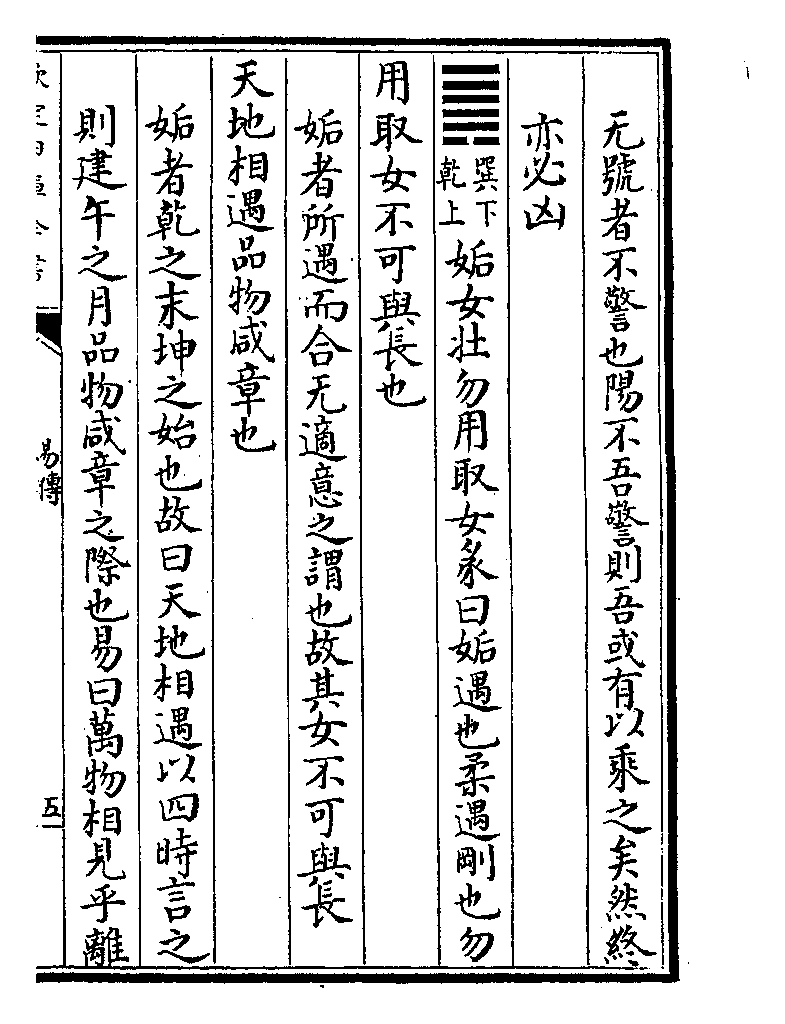 无號者不警也陽不吾警則吾或有以乘之矣然終
亦必凶
䷫巽下乾上姤女壯勿用取女彖曰姤遇也柔遇剛也勿
用取女不可與長也
姤者所遇而合无適意之謂也故其女不可與長
天地相遇品物咸章也
姤者乾之末坤之始也故曰天地相遇以四時言之
則建午之月品物咸章之際也易曰萬物相見乎離
欽定四庫全書
易傳
五